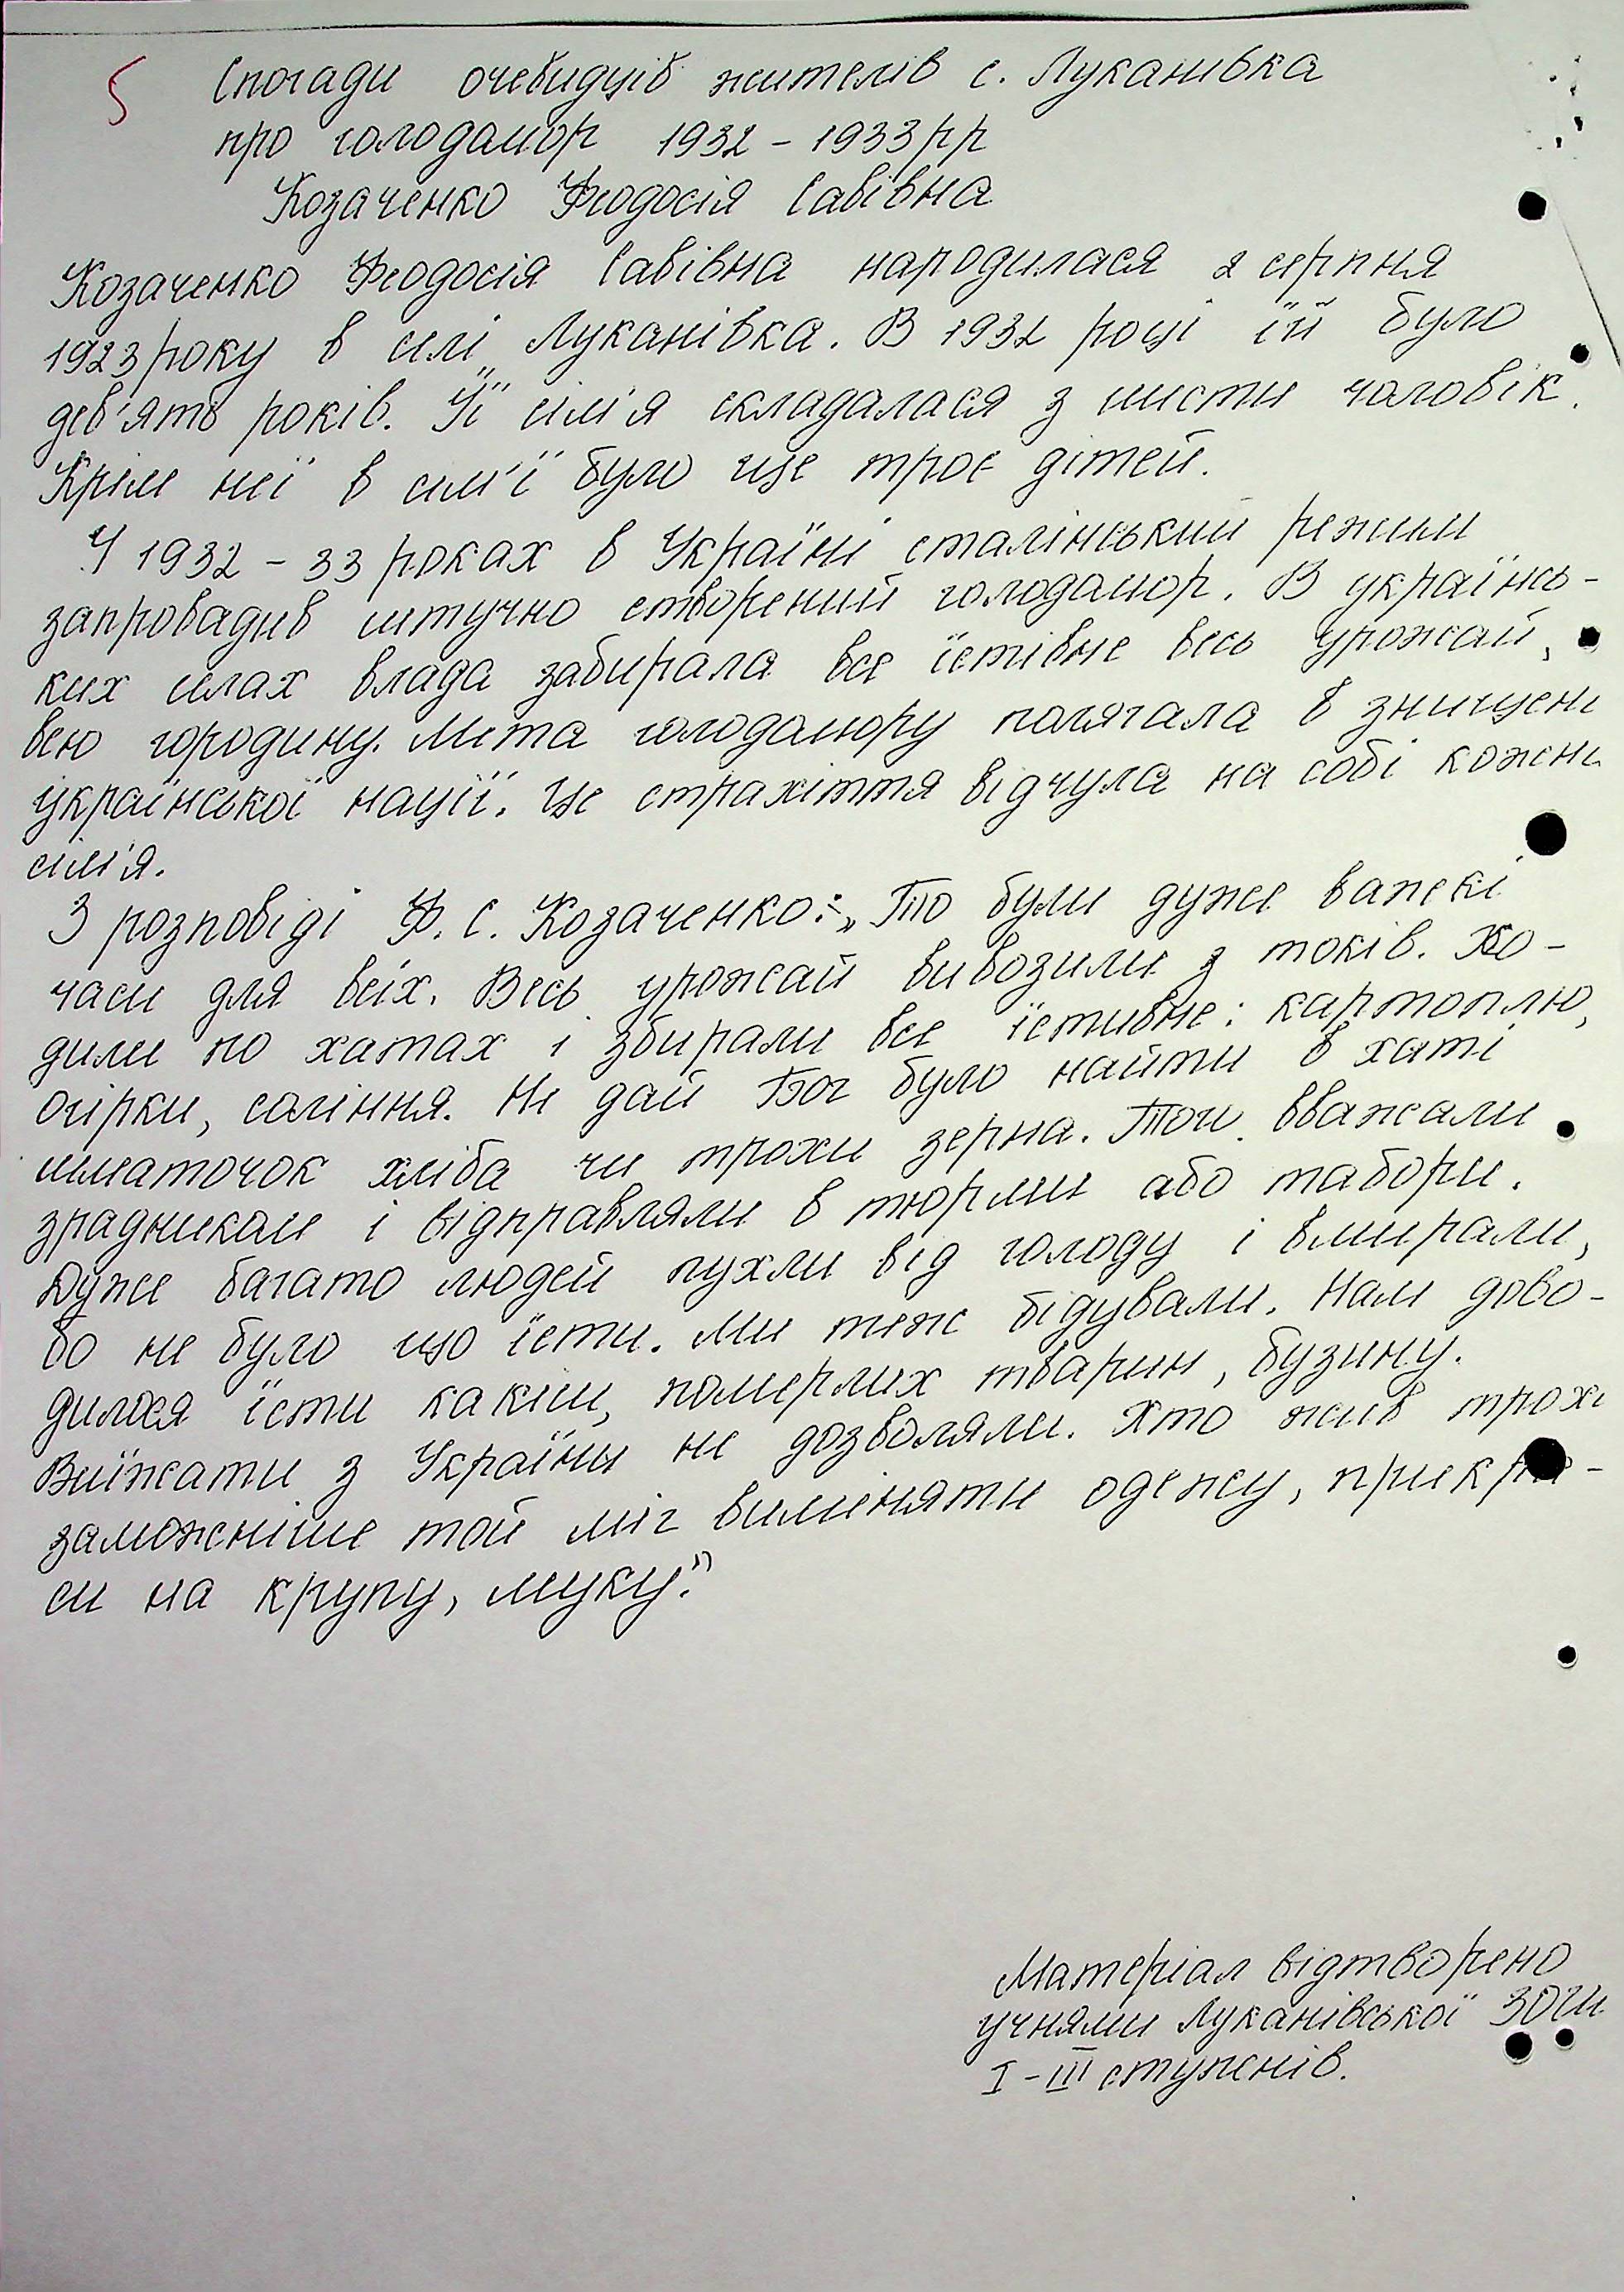 5
Спогади очевидців жителів с. Луканівка
про голодомор 1932 - 1933 рр
Козаченко Феодосія Савівна
Козаченко Феодосія Савівна народилася 2 серпня
1923 року в селі Луканівка. В 1932 році їй було
дев'ять років. Її сім'я складалася з шисти чоловік.
Крім неї в сім'ї було ще троє дітей.
У 1932 - 33 роках в Україні сталінський режим
запровадив штучно створений голодомор. В українсь-
ких селах влада забирала все їстівне весь урожай,
всю городину. Мета голодомору полягала в знищені
української нації. Це страхіття відчула на собі кожна
сім'я.
З розповіді Ф. С. Козаченко: „То були дуже важкі
часи для всіх. Весь урожай вивозили з токів. Хо-
дили по хатах і збирали все їстивне: картоплю,
огірки, соління. Не дай Бог було найти в хаті
шматочок хліба чи трохи зерна. Того вважали
зрадником і відправляли в тюрми або табори.
Дуже багато людей пухли від голоду і вмирали,
бо не було що їсти. Ми теж бідували. Нам дово-
дилося їсти качки, померлих тварин, бузину.
Виїжати з України не дозволяли. Хто жив трохи
заможніше той міг виміняти одежу, прикра-
си на крупу, муку."
Матеріал відтворено
учнями Луканівської ЗОШ
I - III ступенів.